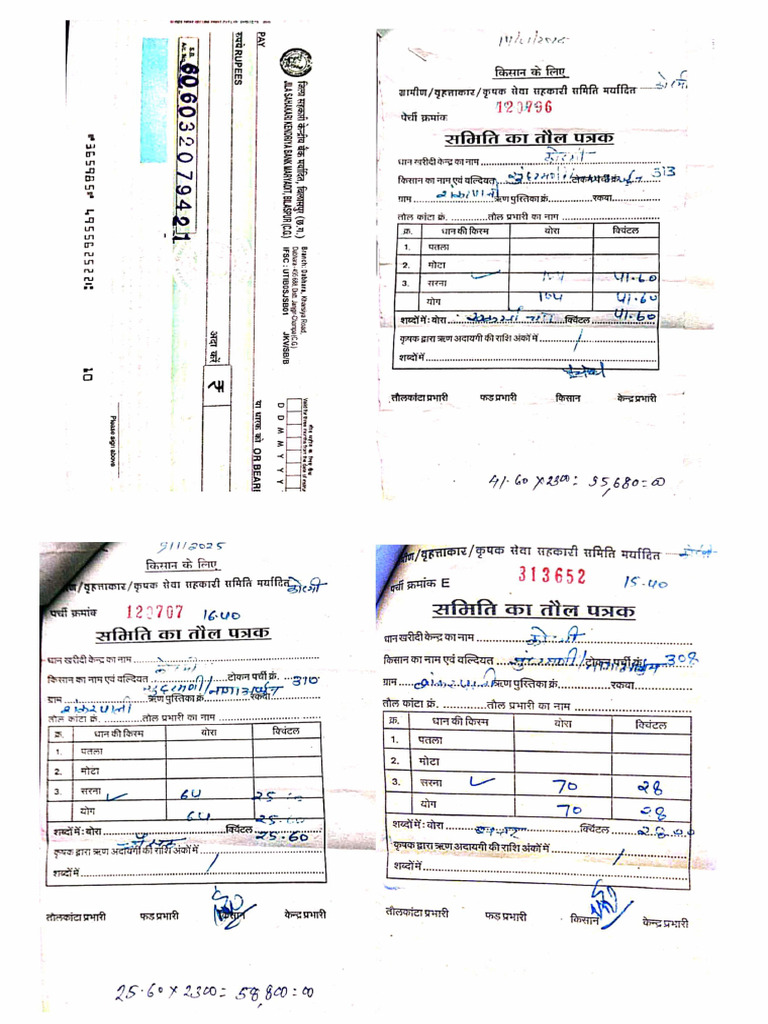 जिला सहकारी केन्द्रीय बैंक मर्यादित, बिलासपुर (छ.ग.)
JILA SAHAKARI KENDRIYA BANK MARYADIT, BILASPUR (C.G.)
Branch: Dabhara, Kharsiya Road,
IFSC : UTIB0SJSB01
JKV/SB/B
D D M M Y Y Y
PAY
या धारक को OR BEAR
रुपये RUPEES
अदा करें
₹
S.B.
60603207942 1
Please sign above
⑈365985⑈ 495562522⑆ 10
किसान के लिए
ग्रामीण/वृहत्ताकार/कृषक सेवा सहकारी समिति मर्यादित
पर्ची क्रमांक 120796
समिति का तौल पत्रक
धान खरीदी केन्द्र का नाम
किसान का नाम एवं वल्दियत 313
ग्राम ऋण पुस्तिका क्रं. रकवा
तौल कांटा क्रं. तौल प्रभारी का नाम
क्र. धान की किस्म बोरा क्विंटल
1. पतला
2. मोटा
3. सरना ✓ 104 41.60
योग 104 41.60
शब्दों में: बोरा क्विंटल 41.60
कृषक द्वारा ऋण अदायगी की राशि अंकों में /
शब्दों में
तौलकांटा प्रभारी फड प्रभारी किसान केन्द्र प्रभारी
41.60 × 2300 = 95,680=00
9/1/2025
किसान के लिए
/वृहत्ताकार/कृषक सेवा सहकारी समिति मर्यादित
पर्ची क्रमांक 120707 16.40
समिति का तौल पत्रक
धान खरीदी केन्द्र का नाम
किसान का नाम एवं वल्दियत टोकन पर्ची क्रं. 310
ग्राम ऋण पुस्तिका क्रं. रकवा
तौल कांटा क्रं. तौल प्रभारी का नाम
क्र. धान की किस्म बोरा क्विंटल
1. पतला
2. मोटा
3. सरना ✓ 64 25
योग 64 25.60
शब्दों में: बोरा क्विंटल 25.60
कृषक द्वारा ऋण अदायगी की राशि अंकों में /
शब्दों में
तौलकांटा प्रभारी फड प्रभारी किसान केन्द्र प्रभारी
25.60 × 2300 = 58,800=00
/वृहत्ताकार/कृषक सेवा सहकारी समिति मर्यादित
पर्ची क्रमांक E 313652 15.40
समिति का तौल पत्रक
धान खरीदी केन्द्र का नाम
किसान का नाम एवं वल्दियत टोकन पर्ची क्रं. 308
ग्राम ऋण पुस्तिका क्रं. रकवा
तौल कांटा क्रं. तौल प्रभारी का नाम
क्र. धान की किस्म बोरा क्विंटल
1. पतला
2. मोटा
3. सरना ✓ 70 28
योग 70 28
शब्दों में: बोरा क्विंटल 28.00
कृषक द्वारा ऋण अदायगी की राशि अंकों में /
शब्दों में
तौलकांटा प्रभारी फड प्रभारी किसान केन्द्र प्रभारी